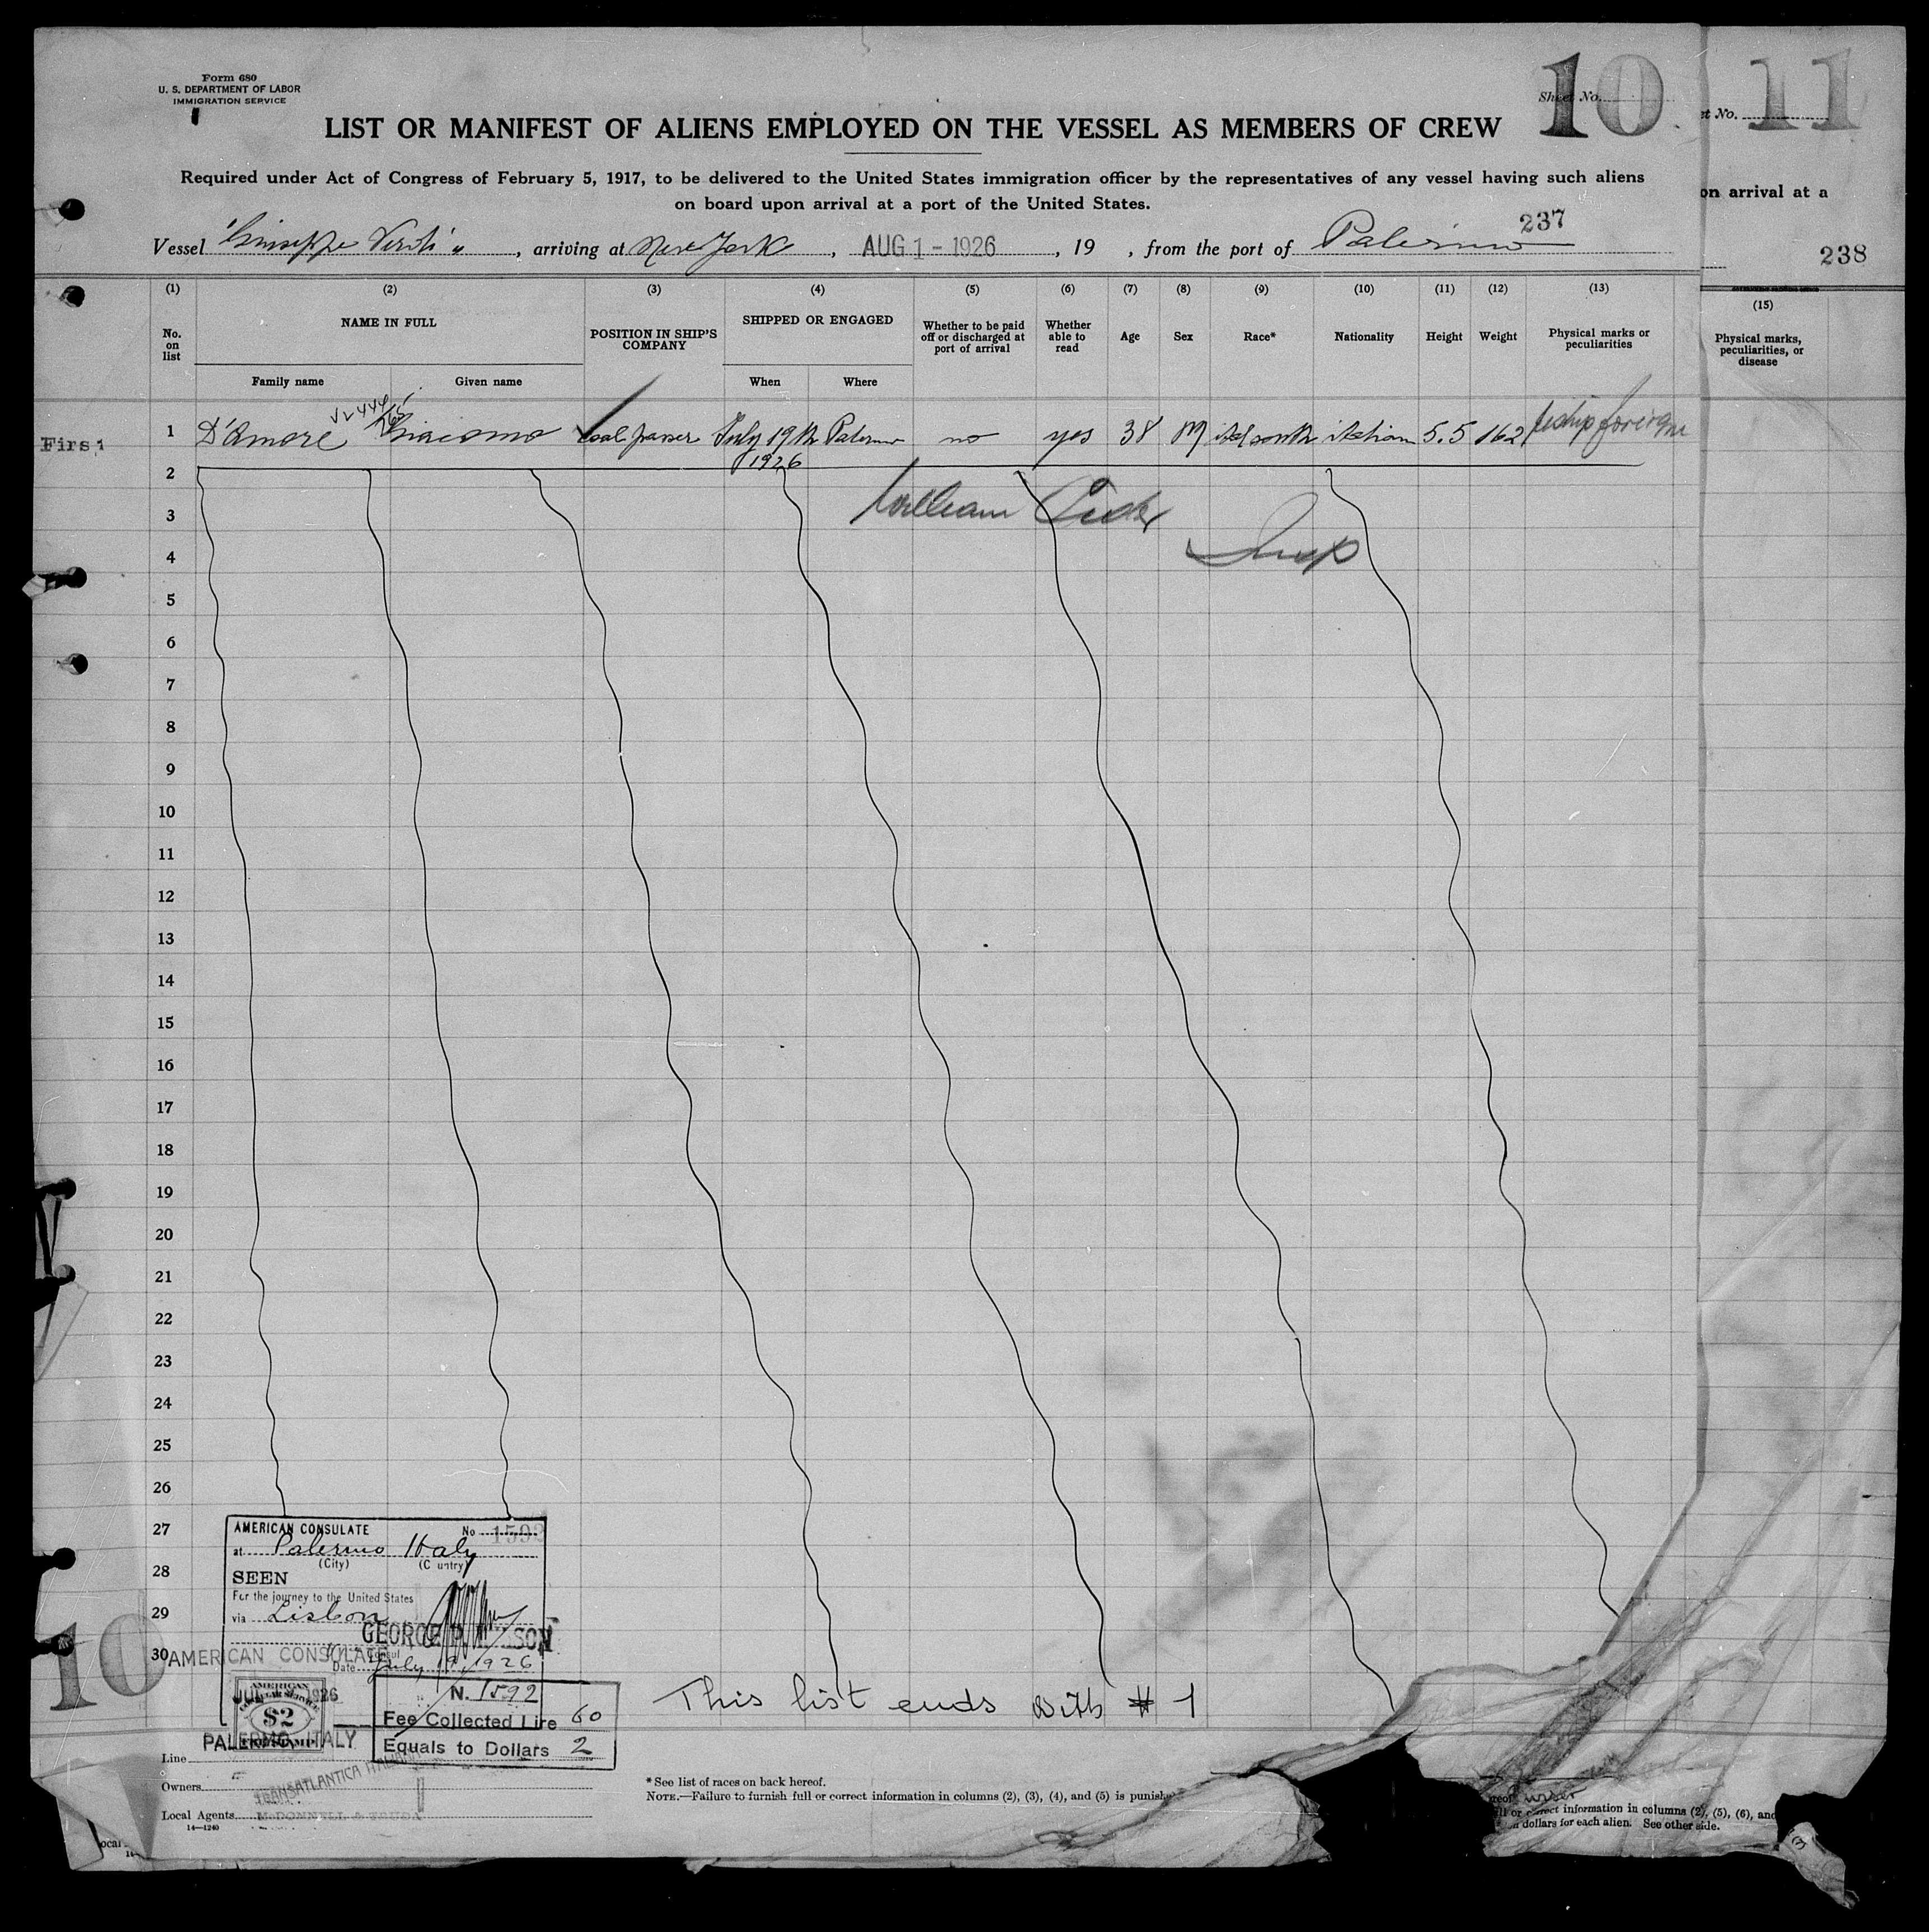 Form 680
U. S. DEPARTMENT OF LABOR
IMMIGRATION SERVICE
Sheet No. 10
et No. 11
LIST OR MANIFEST OF ALIENS EMPLOYED ON THE VESSEL AS MEMBERS OF CREW
Required under Act of Congress of February 5, 1917, to be delivered to the United States immigration officer by the representatives of any vessel having such aliens
on board upon arrival at a port of the United States.
on arrival at a
237
238
Vessel "Giuseppe Verdi", arriving at New York, AUG 1 - 1926, 19 , from the port of Palermo
(1) (2) (3) (4) (5) (6) (7) (8) (9) (10) (11) (12) (13)
(15)
No. on list
NAME IN FULL
Family name Given name
POSITION IN SHIP'S COMPANY
SHIPPED OR ENGAGED
When Where
Whether to be paid off or discharged at port of arrival
Whether able to read
Age
Sex
Race*
Nationality
Height
Weight
Physical marks or peculiarities
Physical marks, peculiarities, or disease
First
1 D'Amore Giacomo Coal passer July 19th 1926 Palermo no yes 38 M ital south italian 5.5 162 reship foreign
2
William
3
4
5
6
7
8
9
10
11
12
13
14
15
16
17
18
19
20
21
22
23
24
25
26
27
28
29
30
AMERICAN CONSULATE No. 1592
at Palermo Italy
(City) (Country)
SEEN
For the journey to the United States
via Lisbon
GEORGE
Consul
Date July 19, 1926
AMERICAN CONSULATE
1926
PALERMO, ITALY
AMERICAN
CONSULAR SERVICE
$2
FEE STAMP
N. 1592
Fee Collected Lire 60
Equals to Dollars 2
10
This list ends with # 1
Line
Owners TRANSATLANTICA ITALIANA
Local Agents McDONNELL & TRUDA
14—1240
* See list of races on back hereof.
NOTE.—Failure to furnish full or correct information in columns (2), (3), (4), and (5) is punish
ereof
ll or correct information in columns (2), (5), (6), and
n dollars for each alien. See other side.
ocal
14